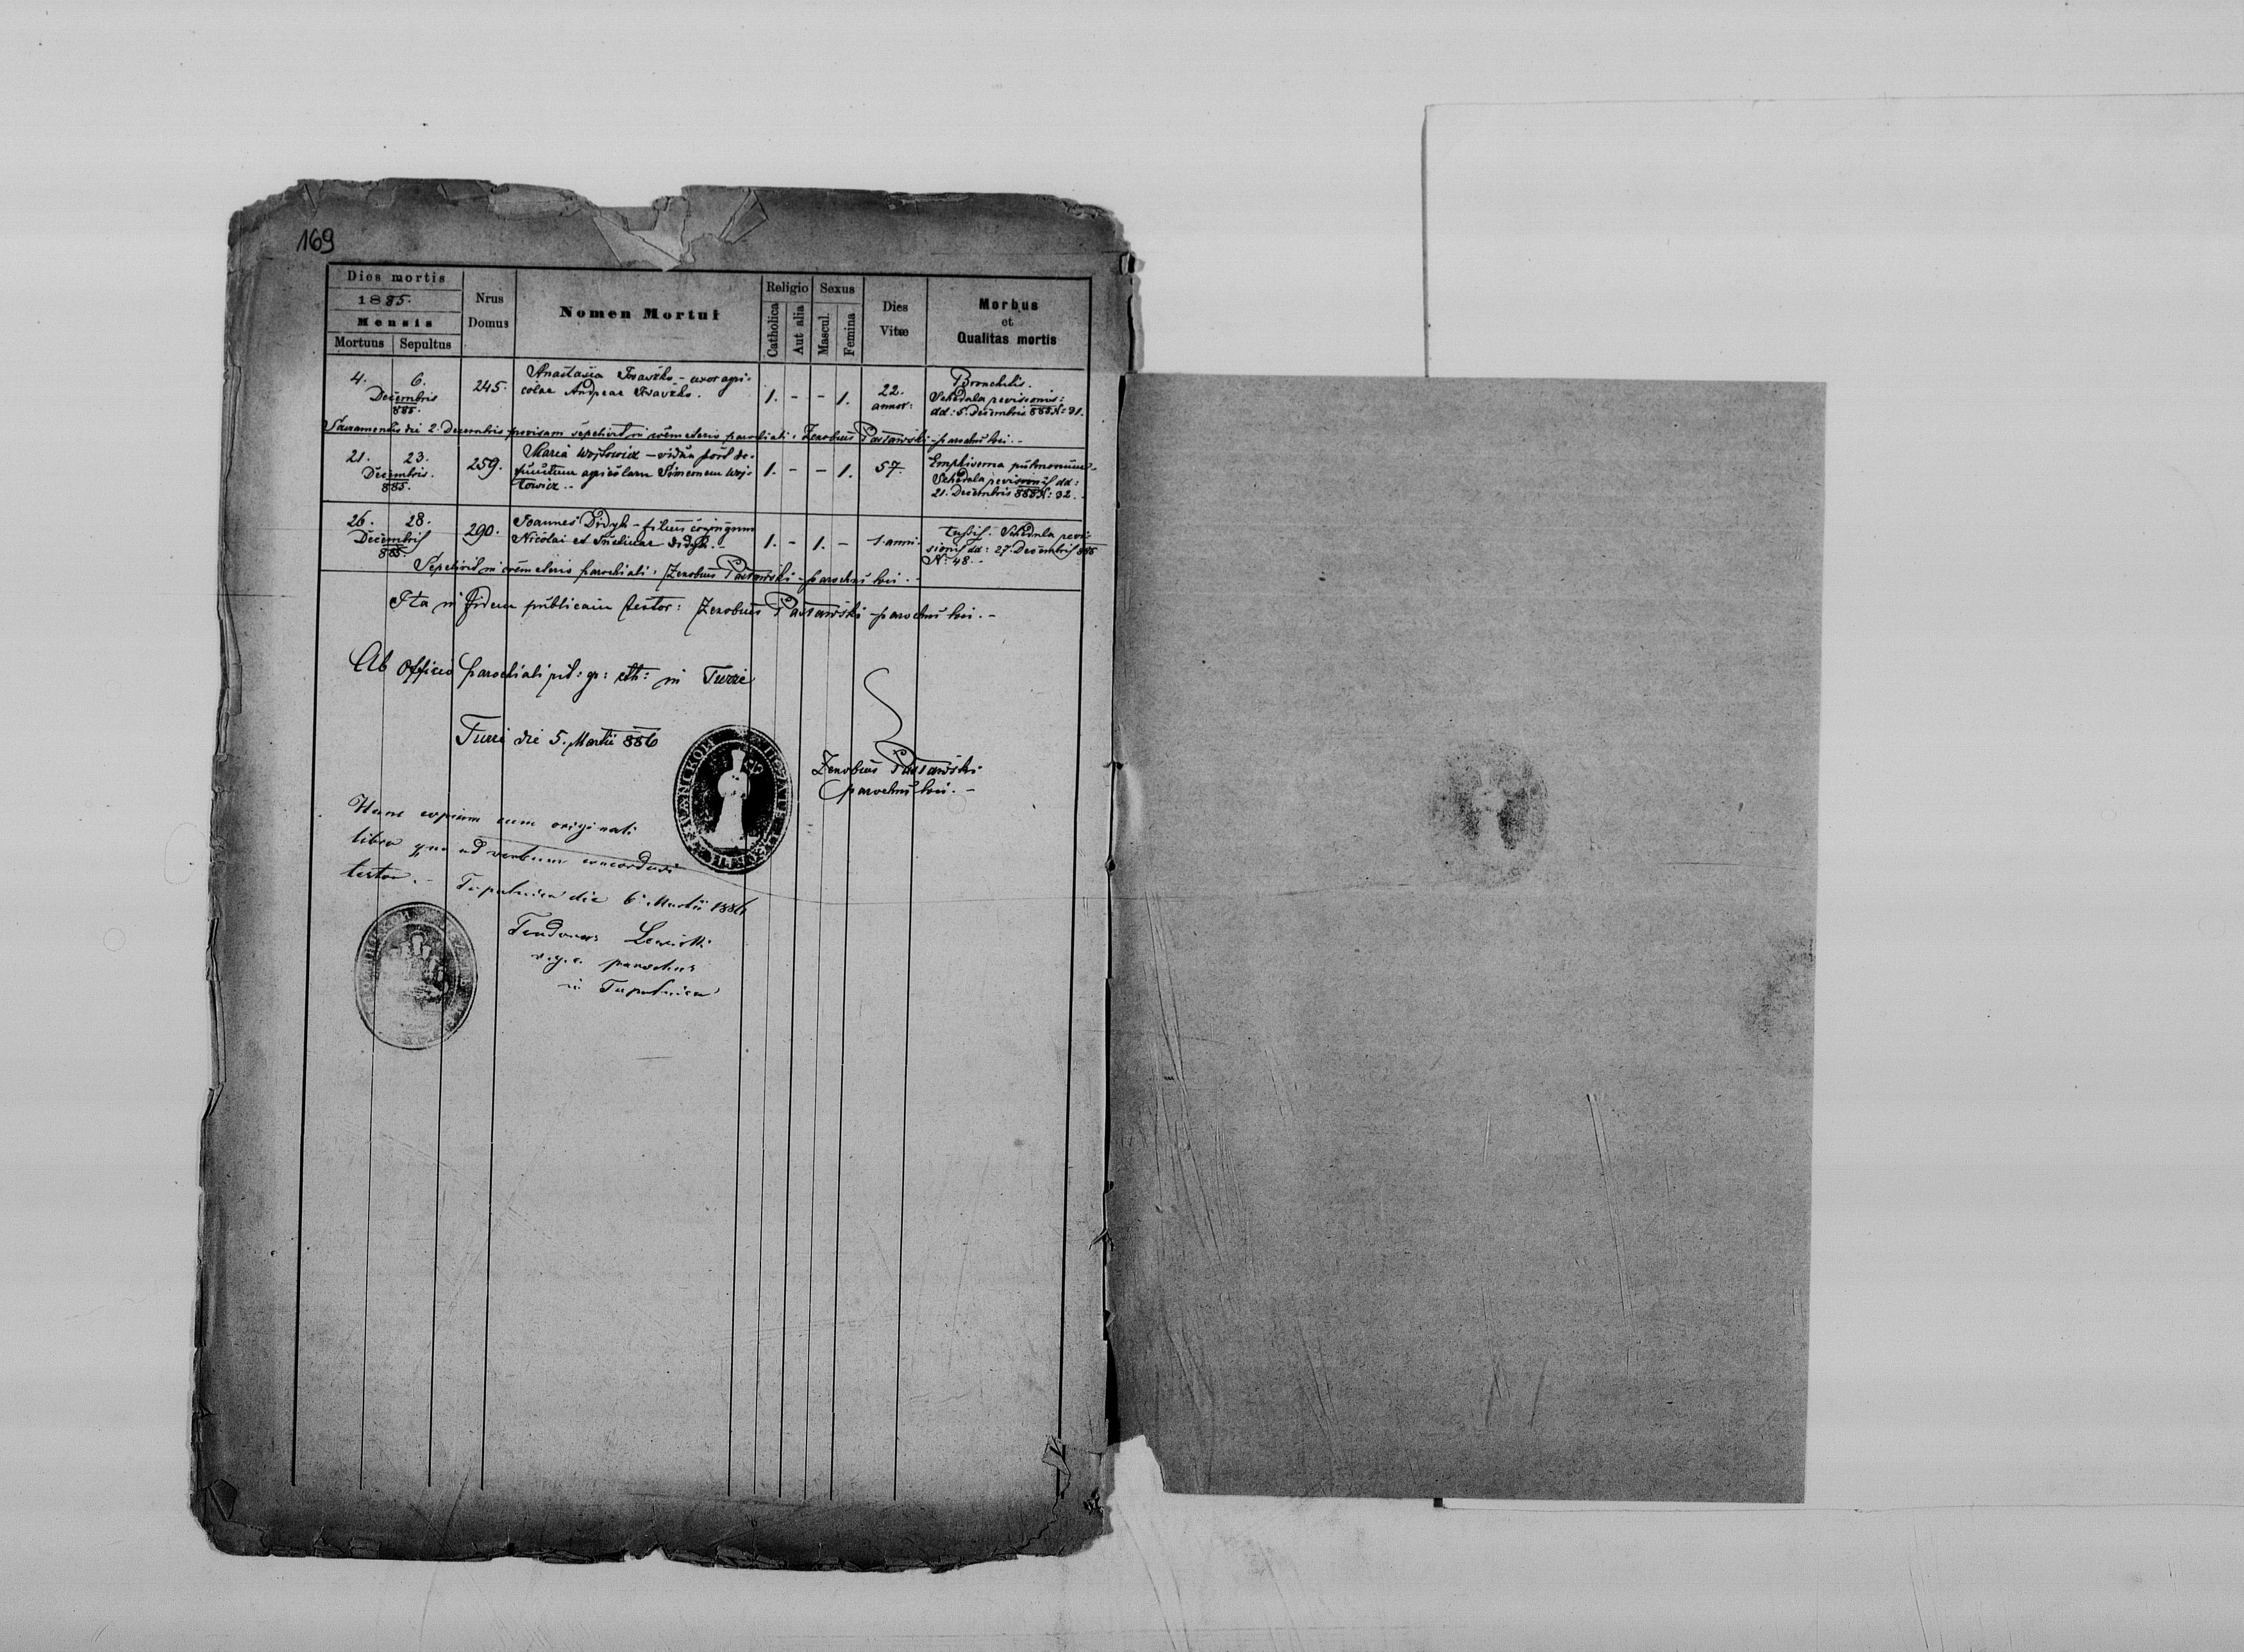 169
Dies mortis
1885.
Mensis
Mortuus Sepultus
Nrus Domus
Nomen Mortui
Religio
Catholica
Aut alia
Sexus
Mascul.
Femina
Dies Vitæ
Morbus
et
Qualitas mortis
4. 6. Decembris 885.
245.
Anastasia - uxor agri-
colae Andreae
1. - - 1.
22. annor:
Bronchitis.
Schedula revisionis:
dd: 5. Decembris 885 N: 31.
Sacramentis die 2. Decembris provisam sepelivit in coemeterio parochiali: Zenobius - parochus loci. -
21. 23. Decembris. 885.
259.
Maria Wojtowicz - vidua post de-
functum agricolam Simeonem Woj-
towicz. -
1. - - 1.
57.
Emphisema pulmonum -
Schedula revisionis dd:
21. Decembris 885 N: 32. -
26. 28. Decembris 885.
290.
Joannes Didyk - filius conjugum
Nicolai et Didyk. -
1. - 1. -
1. anni.
tussis. Schedula revi-
sionis dd: 27. Decembris 885
N: 48. -
Sepelivit in coemeterio parochiali: Zenobius - parochus loci. -
Ita in fidem publicam testor: Zenobius - parochus loci. -
Ab Officio parochiali rit: gr: cth: in Turze
Turze die 5. Martii 886
Zenobius
parochus loci. -
Hanc copiam cum originali
libro quo ad verbum concordasse
testor. - Topolnica die 6 Martii 1886
r. g. c. parochus
in Topolnica